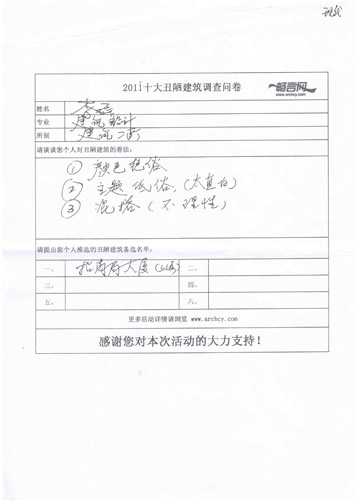 2011十大丑陋建筑调查问卷
畅言网
www.archcy.com
姓名
专业 建筑设计
所别 建筑
请谈谈您个人对丑陋建筑的看法:
① 颜色艳俗
② 主题低俗,(太直白)
③ 混搭(不理性)
请提出您个人推选的丑陋建筑备选名单:
一、 招商局大厦 二、
三、 四、
五、 六、
更多活动详情请浏览 www.archcy.com
感谢您对本次活动的大力支持!